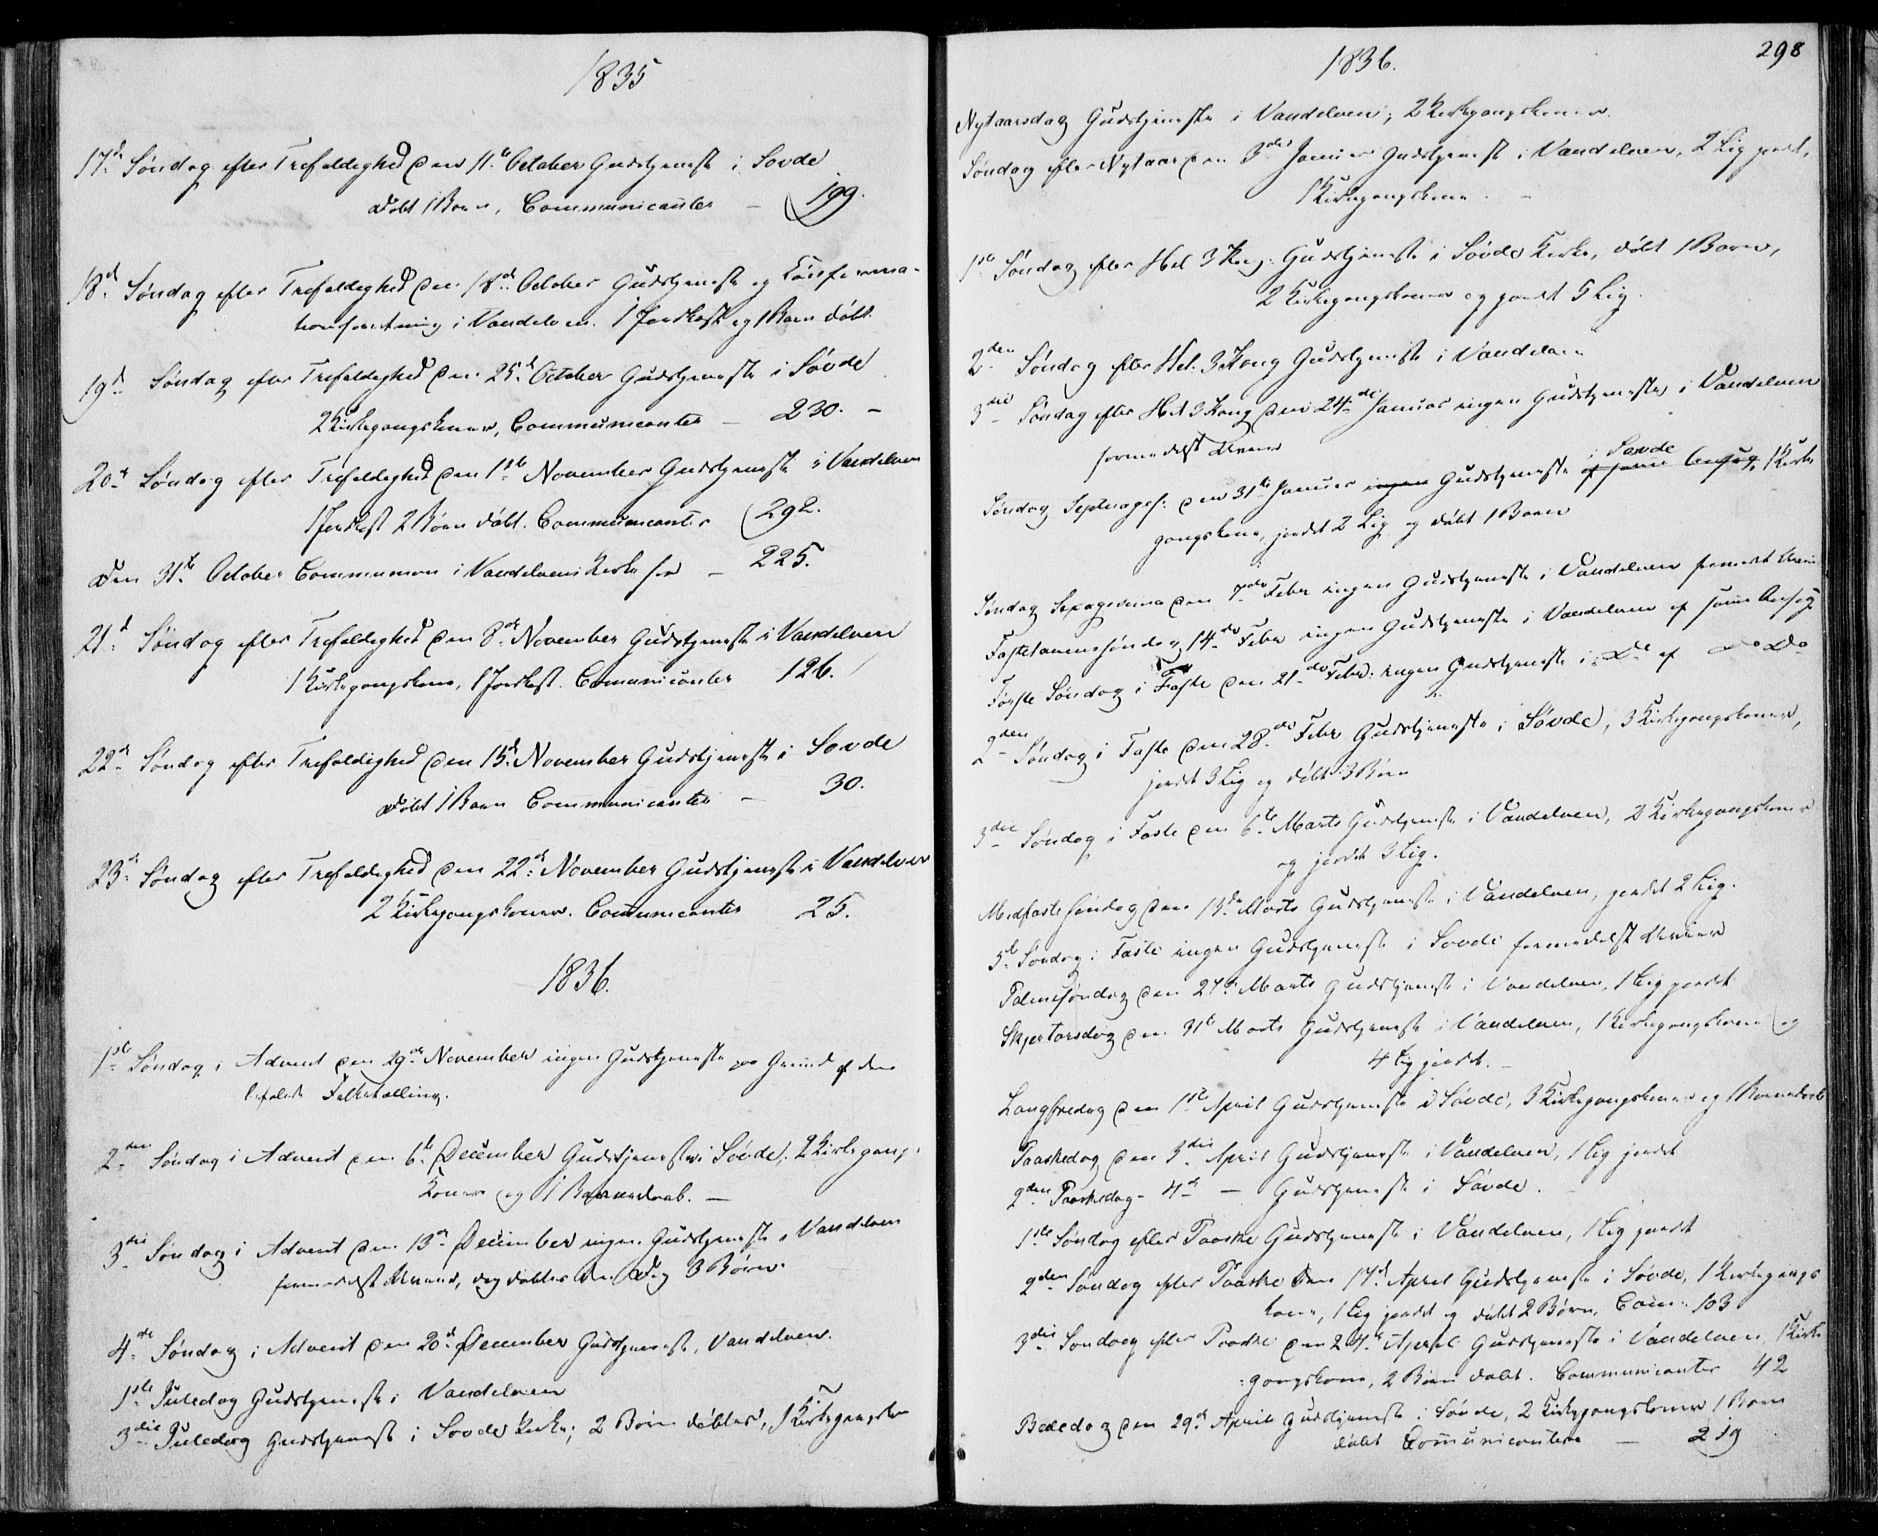 1835
17de Søndag efter Trefoldighed den 11te October Gudstjeneste i Sovde
Døbt 1 Barn, Communicanter – 199.
18de Søndag efter Trefoldighed den 18de October Gudstjeneste og Confirma-
tionsforretning i Vandelven. 1 Jordkast og 1 Barn døbt.
19de Søndag efter Trefoldighed den 25de October Gudstjeneste i Søvde
2 Kirkegangskoner, Communicanter – 230. –
20de Søndag efter Trefoldighed den 1ste November Gudstjeneste i Vandelven
1 Jordkast 2 Børn døbt. Communicanter 292.
Den 31te October Communion i Vandelvens Kirke for – 225.
21de Søndag efter Trefoldighed den 8de November Gudstjeneste i Vandelven
1 Kirkegangskone, 1 Jordkast. Comunicanter 126.
22de Søndag efter Trefoldighed den 15de November Gudstjeneste i Sovde
Døbt 1 Barn Communicanter – 30.
23de Søndag efter Trefoldighed den 22de November Gudstjeneste i Vandelven
2 Kirkegangskoner. Communicanter 25.
1836.
1ste Søndag i Advent den 29de November ingen Gudstjeneste paa Grund af den
befalede Folketælling.
2den Søndag i Advent den 6te December Gudstjeneste i Søvde, 2 Kirkegang-
koner og 1 Barnedaab. –
3die Søndag i Advent den 13de December ingen Gudstjeneste i Vandelven
formedelst Uveir, dog døbtes den Dag 3 Børn.
4de Søndag i Advent den 20de December Gudstjeneste, Vandelven.
1ste Juledag Gudstjeneste i Vandelven
3die Juledag Gudstjeneste i Sovde Kirke; 2 Børn døbtes, 1 Kirkegangsko
1836. 298
Nytaarsdag Gudstjeneste i Vandelven; 2 Kirkegangskoner.
Søndag efter Nytaar den 3die Januar Gudstjeneste i Vandelven, 2 Lig jordet,
1 Kirkegangskone. –
1ste Søndag efter Hel 3 Kong: Gudstjeneste i Søvde Kirke, døbt 1 Barn,
2 Kirkegangskoner og jordet 5 Lig.
2den Søndag efter Hel. 3 Kong Gudstjeneste i Vandelven
3die Søndag efter Hel 3 Kong den 24de Januar ingen Gudstjeneste i Vandelven
formedelst Uveir
i Søvde
Søndag Septuages: den 31te Januar ingen Gudstjeneste af samme Aarsag, 1 Kirke
gangskone, jordet 2 Lig og døbt 1 Barn
Søndag Sexagesima den 7de Febr ingen Gudstjeneste i Vandelven formedelst Uveir
Fastelavenssøndag 14de Febr ingen Gudstjeneste i Vandelven af samme Aarsag
Første Søndag i Faste den 21de Febr. ingen Gudstjeneste i Do af Do Do
2den Søndag i Faste den 28de Febr Gudstjeneste i Søvde, 3 Kirkegangskoner,
jordet 3 Lig og døbt 3 Børn
3die Søndag i Faste den 6te Marts Gudstjeneste i Vandelven, 2 Kirkegangskoner
og jordet 3 Lig.
Midfastesøndag den 13de Marts Gudstjeneste i Vandelven, jordet 2 Lig.
5te Søndag i Faste ingen Gudstjeneste i Sovde formedelst Uveir
Palmesøndag den 27de Marts Gudstjeneste i Vandelven, 1 Lig jordet
Skjertorsdag den 31te Marts Gudstjeneste i Vandelven, 1 Kirkegangskone og
4 Lig jordet. –
Langfredag den 1ste April Gudstjeneste i Søvde, 3 Kirkegangskoner og 1 Barnedaab
Paaskedag den 3die April Gudstjeneste i Vandelven, 1 Lig jordet
2den Paaskedag – 4de – Gudstjeneste i Søvde. –
1ste Søndag efter Paaske Gudstjeneste i Vandelven, 1 Lig jordet
2den Søndag efter Paaske den 17de April Gudstjeneste i Søvde, 1 Kirkegangs
kone, 1 Lig jordet og døbt 2 Børn, Com: 103
3die Søndag efter Paaske den 24de April Gudstjeneste i Vandelven, 1 Kirke
gangskone, 2 Børn døbt. Communicanter 42
Bededag den 29de April Gudstjeneste i Søvde, 2 Kirkegangskoner 1 Barn
døbt Communicantere – 219